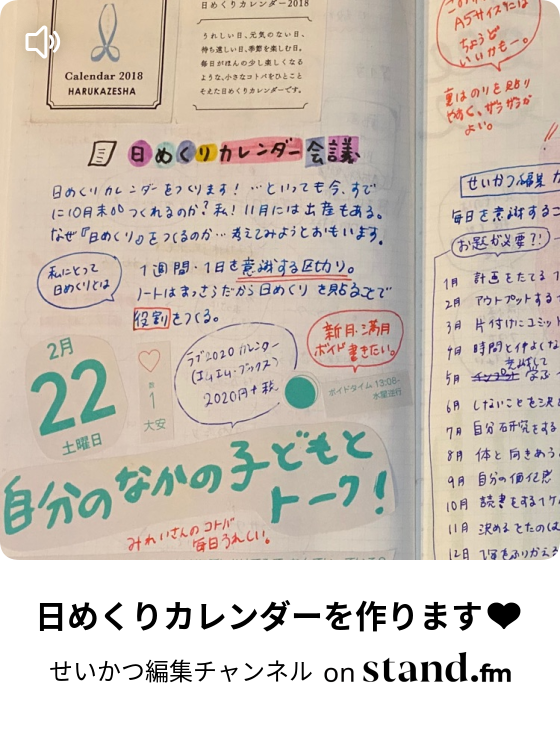 Calendar 2018
HARUKAZESHA
日めくりカレンダー2018
うれしい日、元気のない日、
待ち遠しい日、季節を楽しむ日。
毎日がほんの少し楽しくなる
ような、小さなコトバをひとこと
そえた日めくりカレンダーです。
日めくりカレンダー会議
日めくりカレンダーをつくります! …といっても今、すで
に10月末。つくれるのか?私! 11月には出産もある。
なぜ『日めくり』をつくるのか…考えてみようとおもいます。
私にとって
日めくりとは
1週間・1日を意識する区切り。
ノートはまっさらだから日めくりを貼ることで
役割をつくる。
新月・満月
ボイド書きたい。
ラブ2020カレンダー
(エムエム・ブックス)
2020円+税
2月
22
土曜日
1
大安
ボイドタイム 13:08-
水星逆行
自分のなかの子どもと
トーク!
みれいさんのコトバ
毎日うれしい。
A5サイズには
ちょうど
いいかもー。
裏はのりを貼り
やすく、ザラザラが
よい。
せいかつ編集
毎日を意識するこ
お題が必要?!
1月 計画をたてる
2月 アウトプットする
3月 片付けにコミット
4月 時間と仲よく
5月 学ぶ
6月 しないことを決
7月 自分研究をする
8月 体と向きあう
9月 自分の価値感
10月 読書をする
11月
12月
日めくりカレンダーを作ります♥
せいかつ編集チャンネル on stand.fm